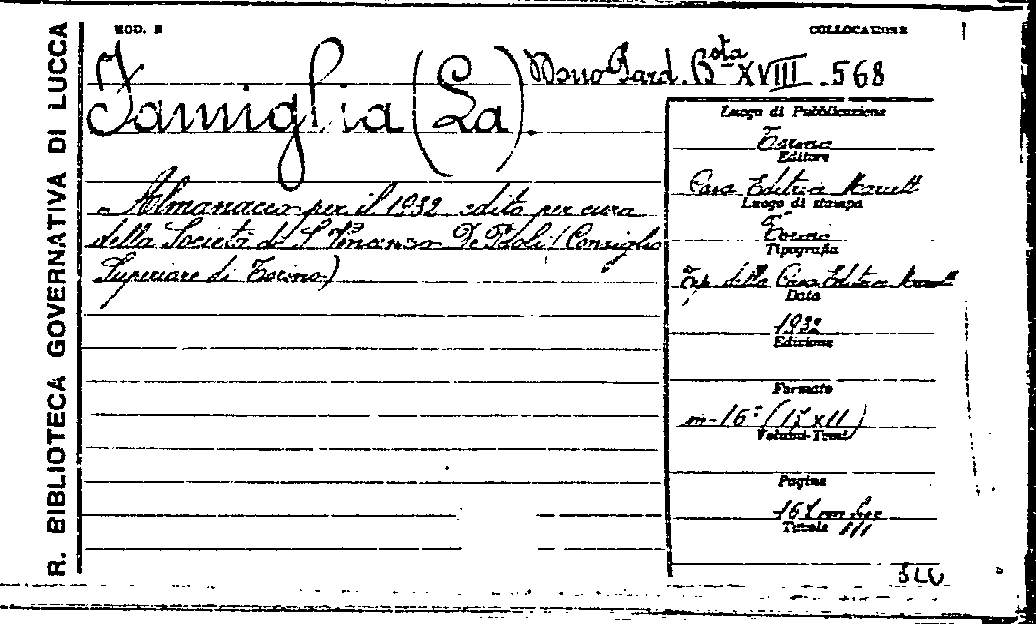 R. BIBLIOTECA GOVERNATIVA DI LUCCA
MOD. E
COLLOCAZIONE
Famiglia (La).
B.ta XVIII. 568
Almanacco per il 1932 edito per cura
della Società di S. Vincenzo De Paoli (Consiglio
Superiore di Torino)
Luogo di Pubblicazione
Torino
Editore
Casa Editrice
Luogo di stampa
Torino
Tipografia
Tip. della Casa Editrice
Data
1932
Edizione
Formato
in-16° (17 x 11)
Volumi-Tomi
Pagine
Tavole